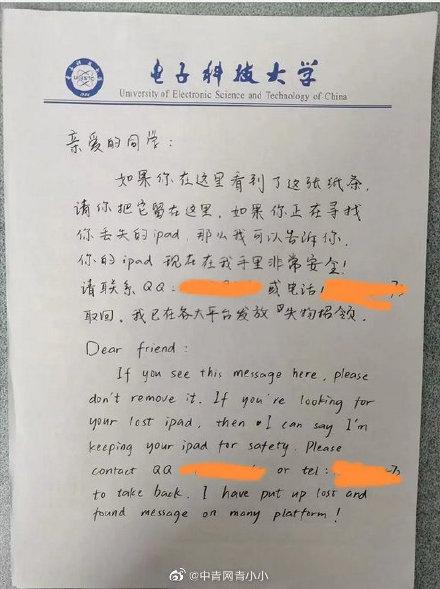 电子科技大学
University of Electronic Science and Technology of China
亲爱的同学：
如果你在这里看到了这张纸条，
请你把它留在这里。如果你正在寻找
你丢失的ipad，那么我可以告诉你，
你的ipad 现在在我手里非常安全！
请联系QQ： 或电话：
取回。我已在各大平台发放“失物招领”。
Dear friend：
If you see this message here, please
don't remove it. If you're looking for
your lost ipad, then I can say I'm
keeping your ipad for safety. Please
contact QQ or tel：
to take back. I have put up lost and
found message on many platform！
@中青网青小小